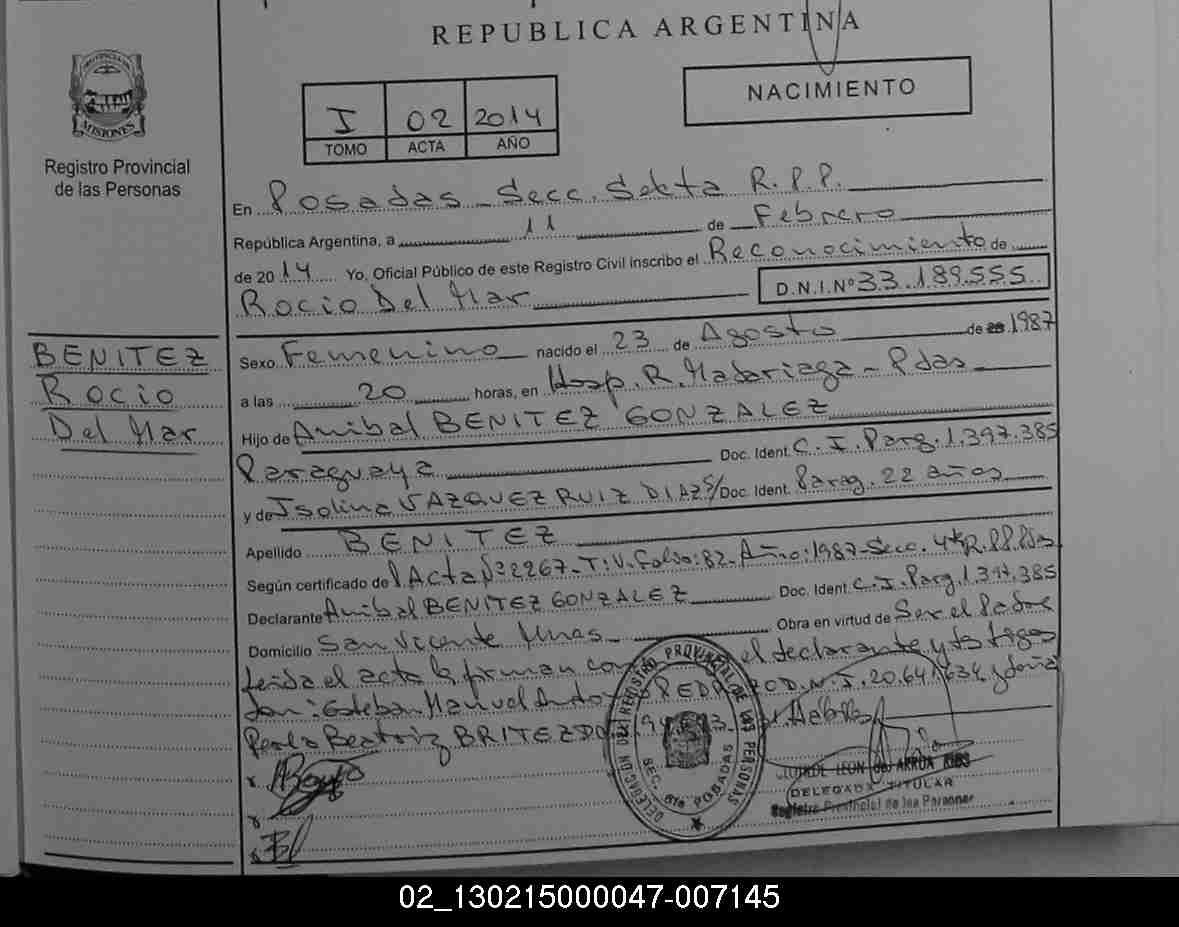 REPUBLICA ARGENTINA
PROVINCIA DE
MISIONES
Registro Provincial
de las Personas
I 02 2014
TOMO ACTA AÑO
NACIMIENTO
En Posadas - Secc. Sexta R.P.P.
República Argentina, a 11 de Febrero
de 2014 Yo, Oficial Público de este Registro Civil inscribo el Reconocimiento de
Rocio Del Mar D.N.I.Nº 33.189.555
BENITEZ
Rocio
Del Mar
Sexo Femenino nacido el 23 de Agosto de 1987
a las 20 horas, en Hosp. R. Madariaga - Pdas
Hijo de Anibal BENITEZ GONZALEZ
Paraguaya Doc. Ident. C.I. Parg. 1.397.385
y de Isolina VAZQUEZ RUIZ DIAZ S/Doc. Ident. Parag. 22 años
Apellido BENITEZ
Según certificado de Acta Nº 2267 - T: V. Folio: 82 - Año: 1987 - Secc. 4ta R.PP. Pdas
Declarante Anibal BENITEZ GONZALEZ Doc. Ident. C.I. Parg. 1.397.385
Domicilio San Vicente Mnes. Obra en virtud de Ser el Padre
leida el acta la firman con el declarante y testigos
Don: Esteban Manuel Anto PEDROZO D.N.I. 20.641.634 y doña
Perla Beatriz BRITEZ
DELEGACION DEL REGISTRO PROVINCIAL DE LAS PERSONAS
SEC. 6ta POSADAS
DELEGADA TITULAR
Registro Provincial de las Personas
02_130215000047-007145